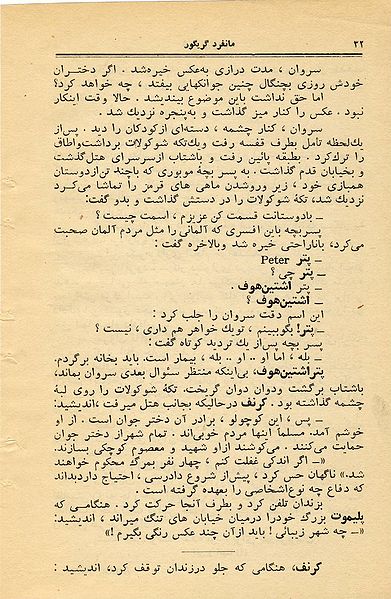 ۲۲ مانفرد گریگور
سروان ، مدت درازی به‌عکس خیره‌شد . اگر دختران
خودش روزی بچنگال چنین جوانهایی بیفتد ، چه خواهد کرد؟
اما حق نداشت باین موضوع بیندیشد . حالا وقت اینکار
نبود . عکس را کنار میز گذاشت و به‌پنجره نزدیك شد .
سروان ، کنار چشمه ، دسته‌ای ازکودکان را دید . پس‌از
یك‌لحظه تامل بطرف قفسه رفت ویك‌تکه شوکولات برداشت‌واطاق
را ترك‌کرد . بطبقه پائین رفت و باشتاب ازسرسرای هتل‌گذشت
و بخیابان قدم گذاشت . به پسر بچهٔ موبوری که باچند تن‌ازدوستان
همبازی خود ، زیر وروشدن ماهی های قرمز را تماشا می‌کرد
نزدیك شد، تکهٔ شوکولات را در دستش گذاشت و بدو گفت:
ــ بادوستانت قسمت کن عزیزم ، اسمت چیست ؟
پسربچه باین افسری که آلمانی را مثل مردم آلمان صحبت
می‌کرد، باناراحتی خیره شد وبالاخره گفت :
ــ پتر Peter
ــ پتر چی ؟
ــ پتر اشتین‌هوف .
ــ اشتین‌هوف ؟
این اسم دقت سروان را جلب کرد :
ــ پتر! بگوببینم ، تویك خواهر هم داری ، نیست ؟
پسر بچه پس‌از یك تردید کوتاه گفت :
ــ بله ، اما او .. او .. بله ، بیمار است. باید بخانه برگردم.
پتراشتین‌هوف، بی‌اینکه منتظر سئوال بعدی سروان بماند،
باشتاب برگشت ودوان دوان گریخت. تکهٔ شوکولات را روی لبهٔ
چشمه گذاشته بود . کرنف درحالیکه بجانب هتل میرفت ،اندیشید:
ــ پس ، این کوچولو ، برادر آن دختر جوان است . از او
خوشم آمد. مسلماً اینها مردم خوبی‌اند . تمام شهراز دختر جوان
حمایت می‌کنند . می‌کوشند ازاو شهید و معصوم کوچکی بسازند.
«ــ اگر اندکی غفلت کنم ، چهار نفر بمرگ محکوم خواهند
شد.» ناگهان حس کرد ، پیش‌از شروع دادرسی ، احتیاج داردبداند
که دفاع چه نوع‌اشخاصی را بعهده گرفته است .
بزندان تلفن کرد و بطرف آنجا حرکت کرد . هنگامی که
پلیموت بزرگ خودرا درمیان خیابان های تنگ میراند ، اندیشید:
«ــ چه شهر زیبائی ! باید ازآن چند عکس رنگی بگیرم !»
کرنف، هنگامی که جلو درزندان توقف کرد، اندیشید :